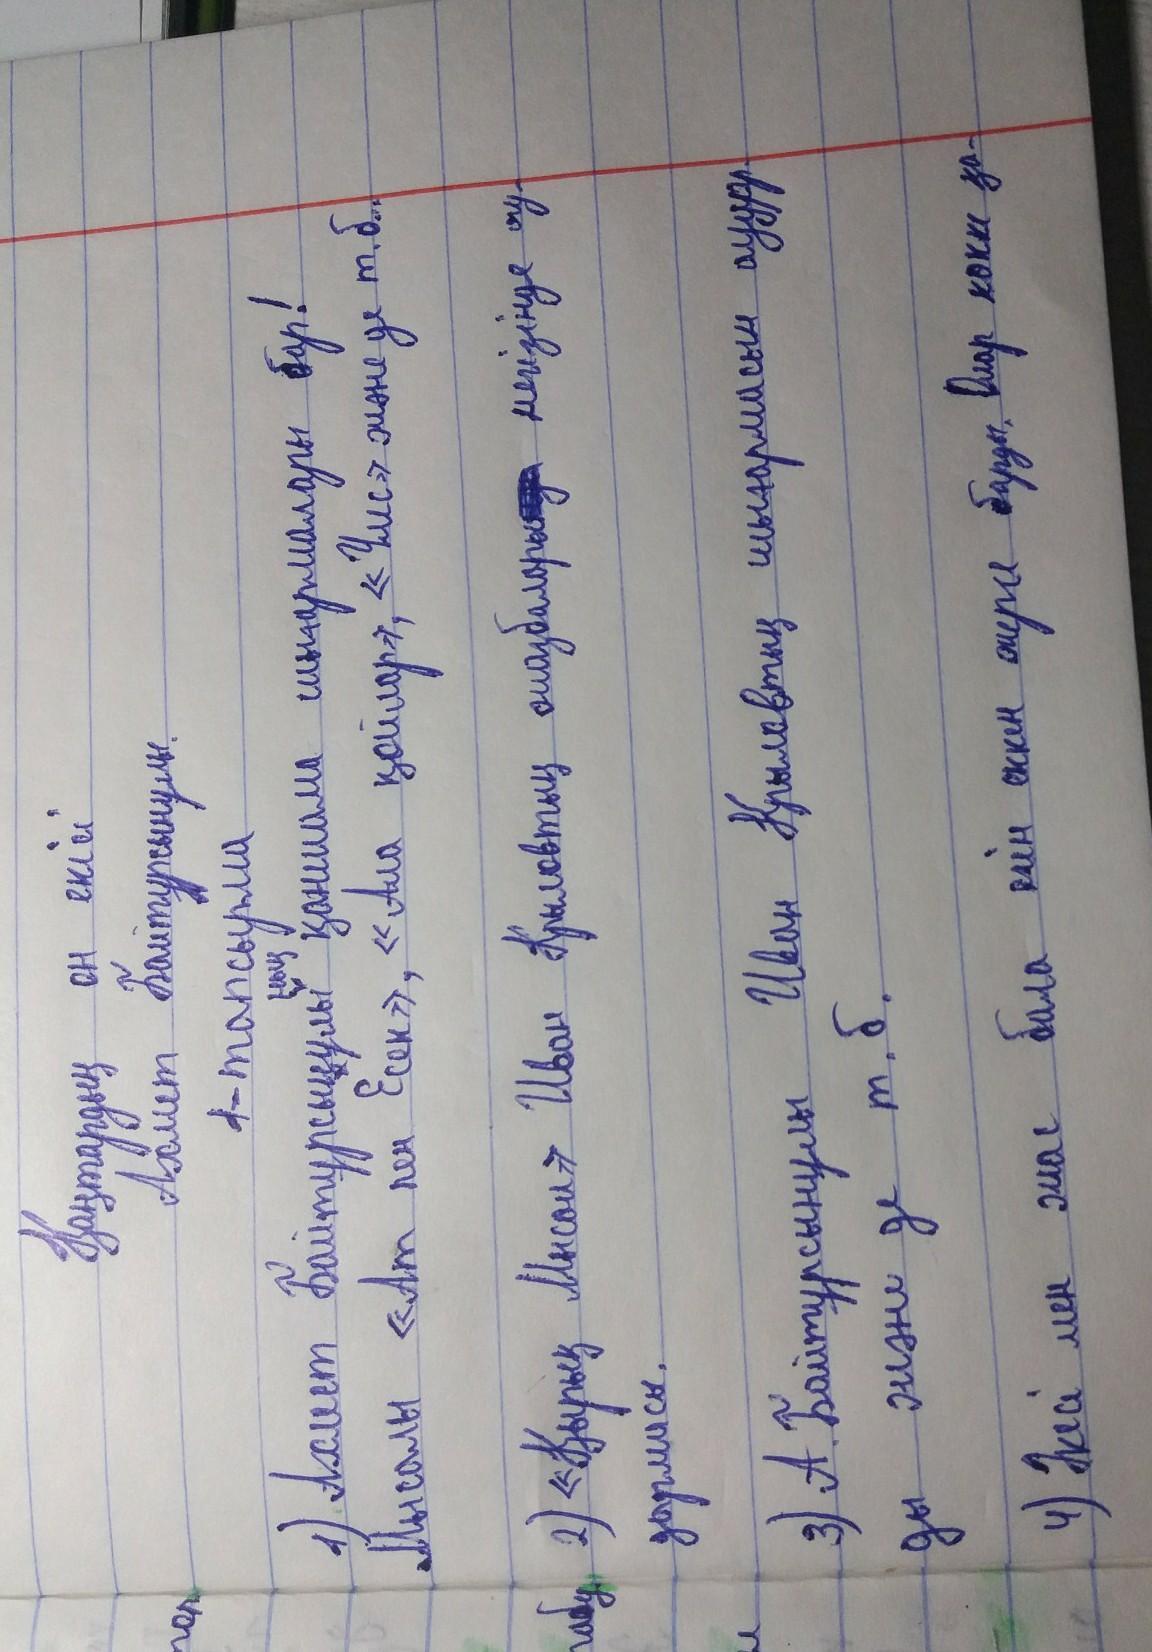 Қаңтардың он екісі
Ахмет Байтұрсынұлы.
1-тапсырма
1) Ахмет Байтұрсынұлының қанша шығармалары бар!
Мысалы «Ат пен Есек», «Ала қойлар», «Үлес» және де т.б..
2) «Қырық Мысал» Иван Крыловтың ошазбалары негізінде ау-
дармасы.
3) А. Байтұрсынұлы Иван Крыловтың шығармасын аудар
ды және де т.б.
4) Әкесі мен жас бала егін еккен жерге барды. Олар кокк қа-